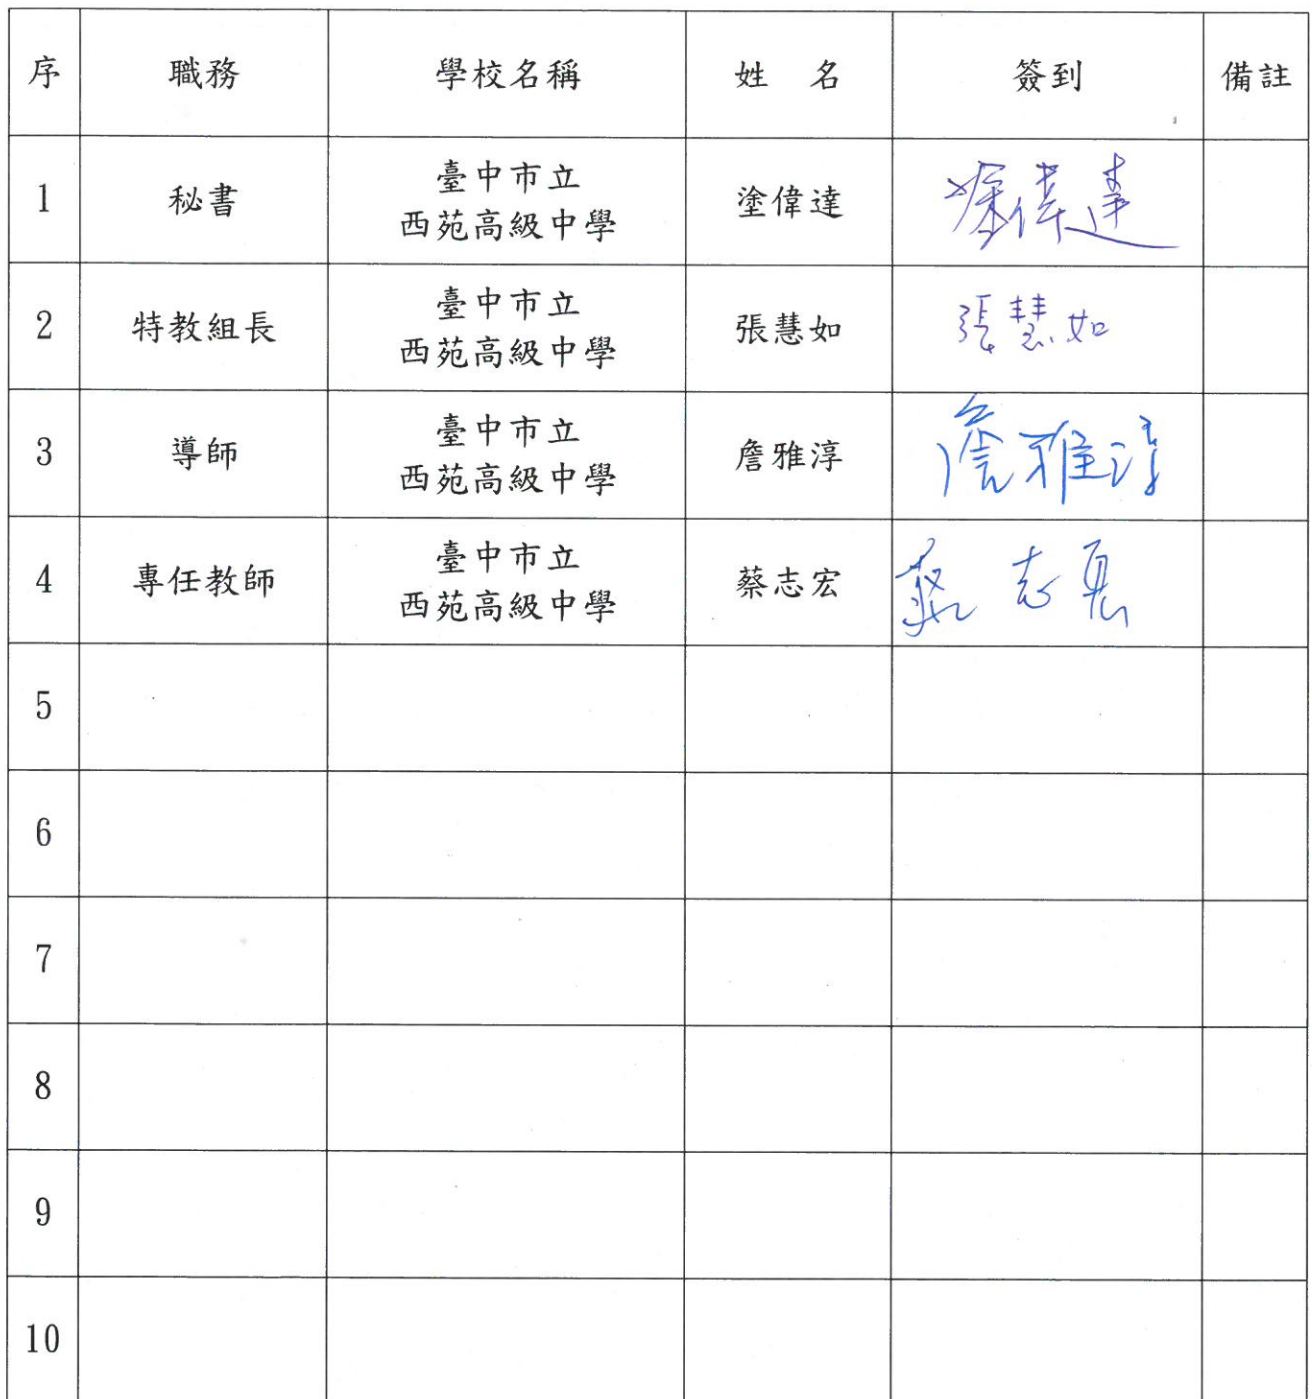 序 職務 學校名稱 姓 名 簽到 備註
1 秘書 臺中市立 西苑高級中學 塗偉達 塗偉達
2 特教組長 臺中市立 西苑高級中學 張慧如 張慧如
3 導師 臺中市立 西苑高級中學 詹雅淳 詹雅淳
4 專任教師 臺中市立 西苑高級中學 蔡志宏 蔡志
5
6
7
8
9
10